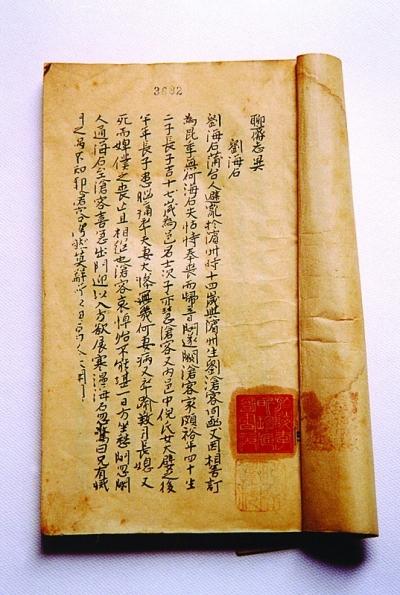 3682
聊齋志異
劉海石
劉海石蒲台人避亂於濱州時十四歲與濱州生劉滄客同函丈因相善訂
為昆季無何海石失怙恃奉喪而歸音問遂闕滄客家頗裕年四十生
二子長子吉十七歲為邑名士次子亦慧滄客又內邑中倪氏女大嬖之後
半年長子患腦痛卒夫妻大慘無幾何妻病又卒逾數月長媳又
死而婢僕之喪亡且相繼也滄客哀悼殆不能堪一日方坐愁間忽閽
人通海石至滄客喜急出門迎以入方欲展寒溫海石忽驚曰兄有滅
門之禍不知耶滄客愕然莫解